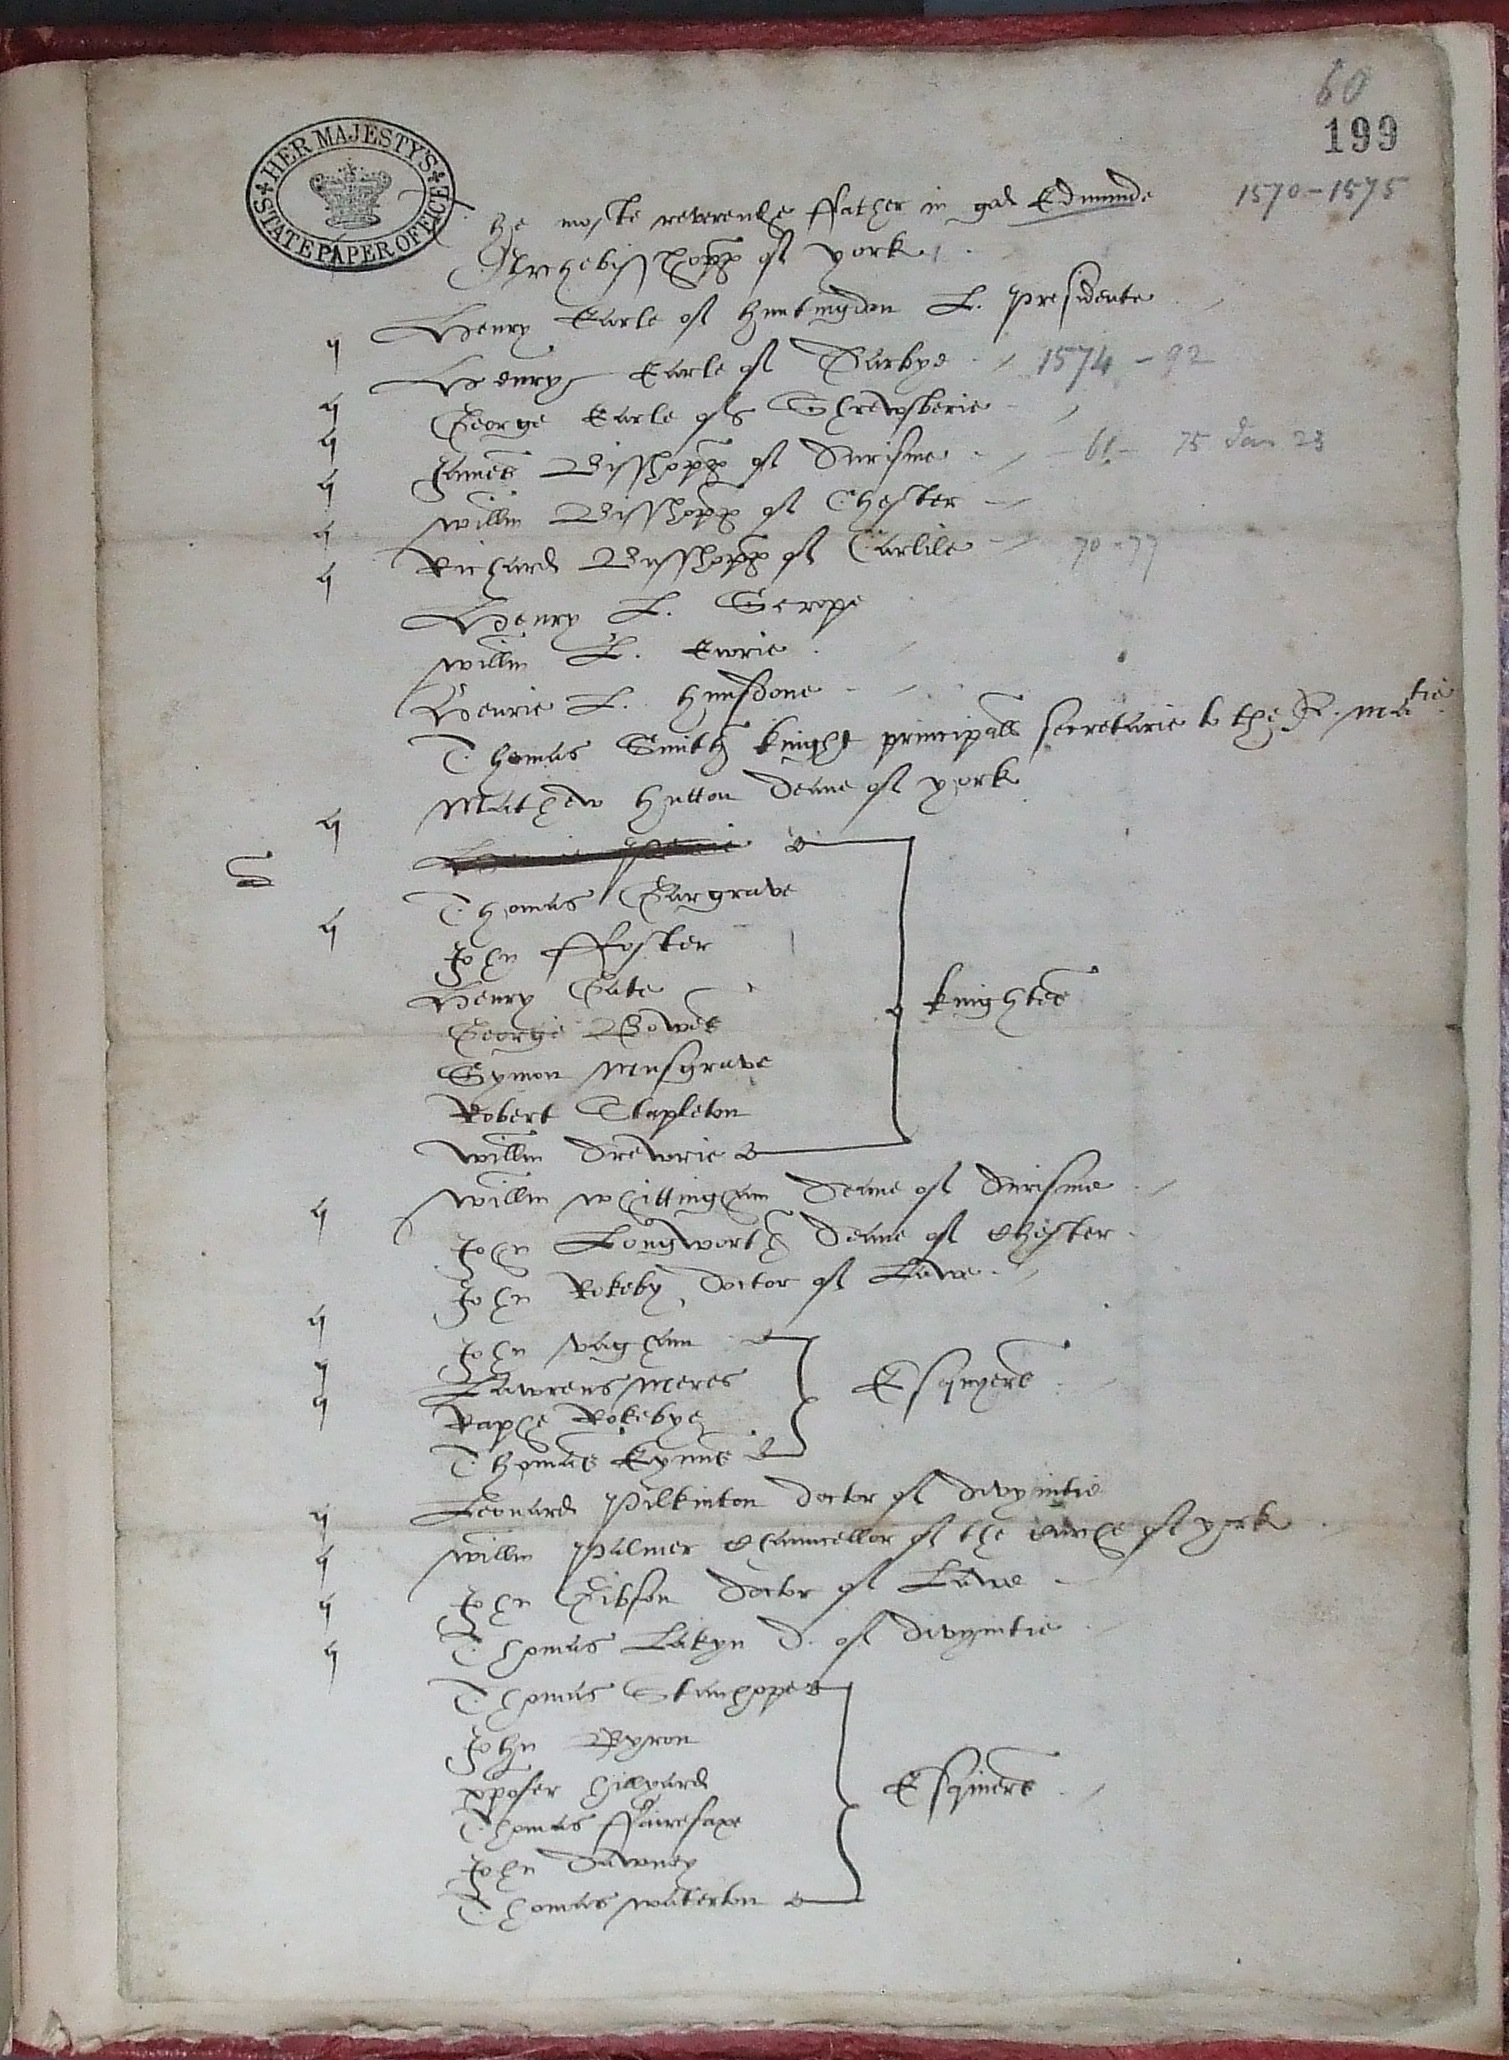 60
199
HER MAJESTY'S STATE PAPER OFFICE
The moste reverende ffather in god Edmunde 1570-1575
Archebisshopp of york
Henry Earle of huntingdon L. presidente
q Henry Earle of Darbye 1574-92
q George Earle of Shrewsberie
q James Bisshopp of Durisme 61- 75 Jan 23
q Willm Bisshopp of Chester
q Richard Bisshopp of Carlile 70-77
q Henry L. Scrope
Willm L. Ewrie
Henrie L. hunsdone
Thomas Smith knight principall secretarie to the Q. matie
Mathew hutton deane of york
q
Thomas Gargrave
q John Foster
Henry Gate
George Bowes
knightes
Symon Musgrave
Robert Stapleton
Willm Drewrie
Willm Whittingham deane of durisme
q John Longworth deane of Chester
John Rokeby doctor of Lawe
q John vaghann
q Lawrens Meres
Esquyers
q Raphe Rokebye
Thomas Eynns
Leonard Pilkinton doctor of divynitie
q Willm Palmer Chauncellor of the churche of york
q John Gibson doctor of Lawe
q Thomas Lakyn d. of divynitie
q Thomas Stanhope
John Byron
xpofer hillyard
Esquiers
Thomas ffairefaxe
John Dawney
Thomas waterton